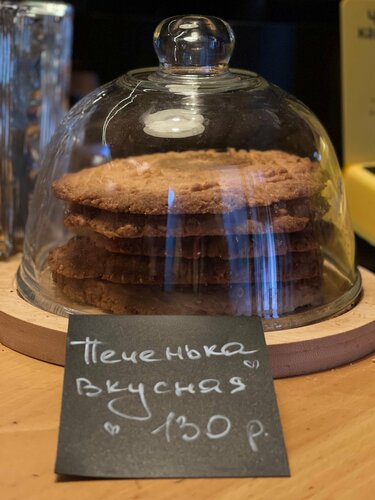 Печенька
вкусная
130 р.